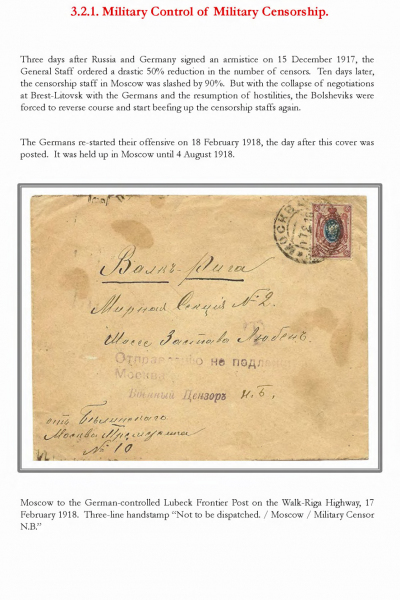 3.2.1. Military Control of Military Censorship.
Three days after Russia and Germany signed an armistice on 15 December 1917, the
General Staff ordered a drastic 50% reduction in the number of censors. Ten days later,
the censorship staff in Moscow was slashed by 90%. But with the collapse of negotiations
at Brest-Litovsk with the Germans and the resumption of hostilities, the Bolsheviks were
forced to reverse course and start beefing up the censorship staffs again.
The Germans re-started their offensive on 18 February 1918, the day after this cover was
posted. It was held up in Moscow until 4 August 1918.
МОСКВА
Валкъ-Рига
Мирная Секція № 2.
Шоссе Застава Любекъ.
Отправленію не подл
Москва
Военный Цензоръ Н.Б.
отъ Бѣлинского
Москва
№ 10
Moscow to the German-controlled Lubeck Frontier Post on the Walk-Riga Highway, 17
February 1918. Three-line handstamp “Not to be dispatched. / Moscow / Military Censor
N.B.”